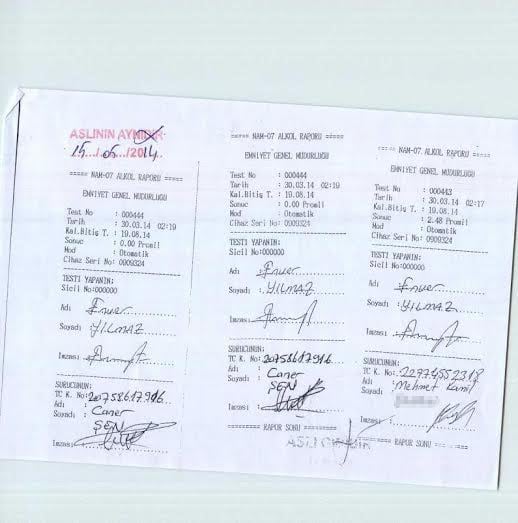 ASLININ AYNIDIR
15/05/2014
===== NAM-07 ALKOL RAPORU =====
EMNIYET GENEL MUDURLUGU
Test No : 000444
Tarih : 30.03.14 02:19
Kal.Bitiş T. : 19.08.14
Sonuc : 0.00 Promil
Mod : Otomatik
Cihaz Seri No: 0909324
TESTI YAPANIN:
Sicil No:000000
Adı : Enver
Soyadı : YILMAZ
Imzası :
SURUCUNUN:
TC K. No: 20758617916
Adı : Caner
Soyadı : ŞEN
Imzası :
===== NAM-07 ALKOL RAPORU =====
EMNIYET GENEL MUDURLUGU
Test No : 000444
Tarih : 30.03.14 02:19
Kal.Bitiş T. : 19.08.14
Sonuc : 0.00 Promil
Mod : Otomatik
Cihaz Seri No: 0909324
TESTI YAPANIN:
Sicil No:000000
Adı : Enver
Soyadı : YILMAZ
Imzası :
SURUCUNUN:
TC K. No: 20758617916
Adı : Caner
Soyadı : ŞEN
Imzası :
===== RAPOR SONU =====
===== NAM-07 ALKOL RAPORU =====
EMNIYET GENEL MUDURLUGU
Test No : 000443
Tarih : 30.03.14 02:17
Kal.Bitiş T. : 19.08.14
Sonuc : 2.48 Promil
Mod : Otomatik
Cihaz Seri No: 0909324
TESTI YAPANIN:
Sicil No:000000
Adı : Enver
Soyadı : YILMAZ
Imzası :
SURUCUNUN:
TC K. No: 22974552318
Adı : Mehmet Kamil
Soyadı :
Imzası :
===== RAPOR SONU =====